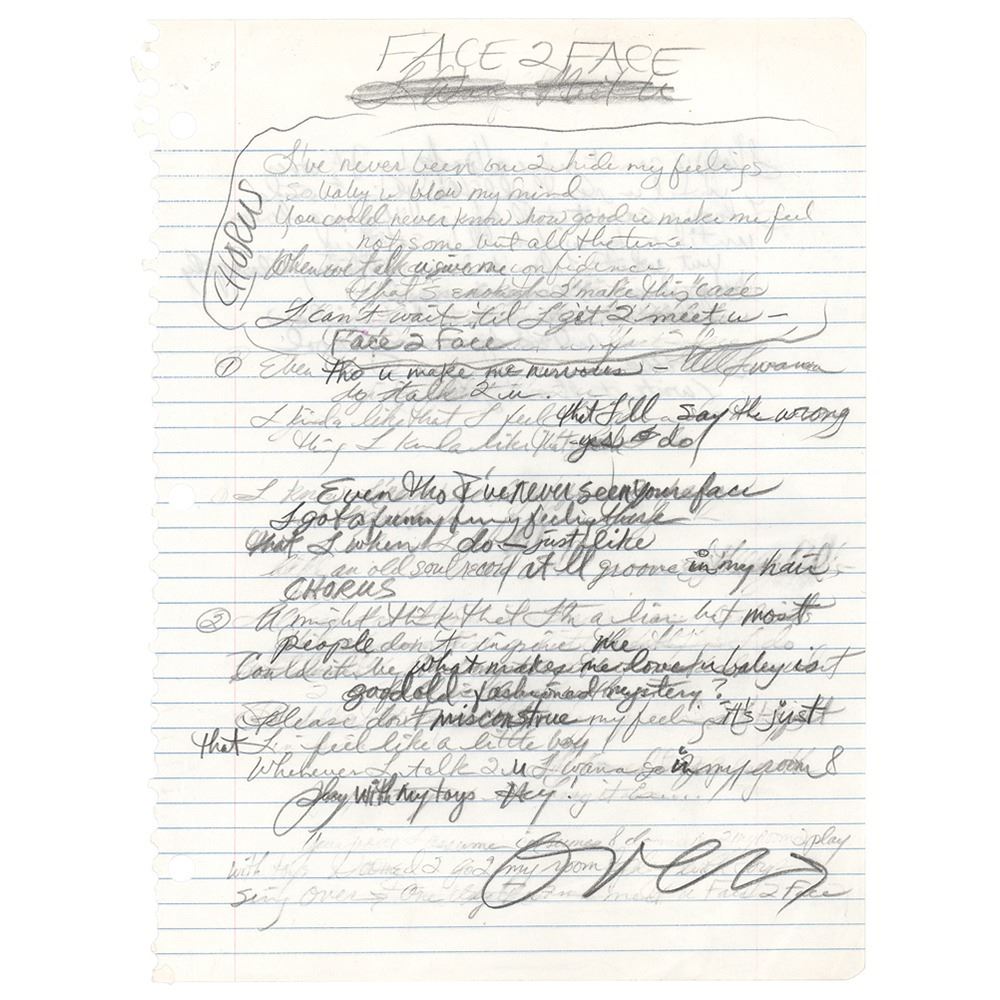 FACE 2 FACE
CHORUS
I've never been one 2 hide my feelings
so baby u blow my mind
You could never know how good u make me feel
not some but all the time.
When we talk u give me confidence
that's enough 2 make this case
I can't wait 'til I get 2 meet u -
Face 2 Face
① Even Tho u make me nervous - All I wanna
do talk 2 u.
I kinda like that I feel that I'll say the wrong
thing I kinda like that yes I do
I Even Tho I've never seen your face
I got a funny funny feeling there
that I when I do - just like
an old soul record it'll groove in my hair
CHORUS
② U might think that I'm a liar but most
people don't inspire me
Could it be what makes me love u baby is it
good old fashioned mystery?
Please don't misconstrue my feelings it's just
that I feel like a little boy
Whenever I talk 2 U I wanna go in my room &
play with my toys Hey!
play
with toys I wanted 2 go 2 my room
Sing over & Face 2 Face